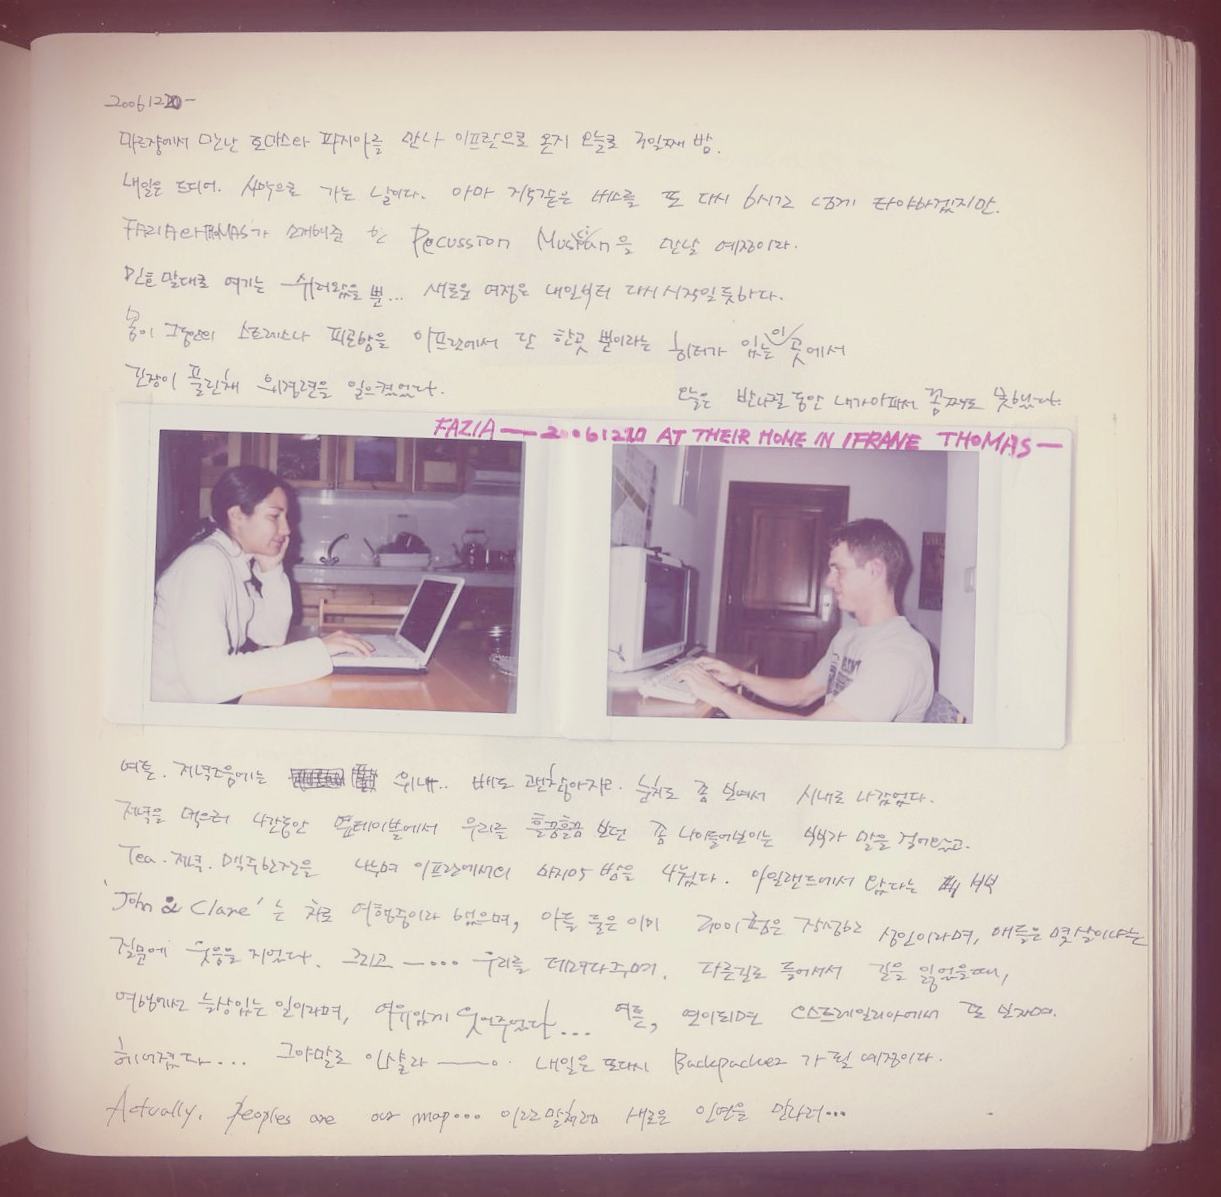 20061220-
마르쟝에서 만난 토마스와 파지아를 만나 이프란으로 온지 오늘로 3일째 밤.
내일은 드디어. 사막으로 가는 날이다. 아마 거지같은 버스를 또 다시 6시간 넘게 타야하겠지만.
FAZIA와 THOMAS가 소개해준 한 Pecussion Musician을 만날 예정이라.
민트 말대로 여기는 쉬러왔을 뿐... 새로운 여정은 내일부터 다시 시작일듯하다.
몸이 그동안의 스트레스나 피로함을 이프란에서 단 한곳 뿐이라는 히터가 있는 이 곳에서
긴장이 풀린채 위경련을 일으켰었다. 오늘은 반나절 동안 내가아파서 꼼짝도 못했다.
FAZIA — 20061220 AT THEIR HOME IN IFRANE THOMAS —
여튼. 저녁즈음에는 위내.. 배도 괜찮아지고. 눈치도 좀 보여서 시내로 나갔었다.
저녁을 먹으러 나간동안 옆테이블에서 우리를 흘끔흘끔 보던 좀 나이들어보이는 부부가 말을 걸어왔고.
Tea. 저녁. 맥주한잔을 나누며 이프란에서의 마지막 밤을 나눴다. 아일랜드에서 왔다는 부부
'John & Clare'는 차로 여행중이라 했으며, 아들 둘은 이미 성인이라며, 애들은 몇살이냐는
질문에 웃음을 지었다. 그리고 —... 우리를 데려다주며. 다른길로 들어서서 길을 잃었을때,
여행에선 늘상있는 일이라며, 여유있게 웃어주었다... 여튼, 연이되면 오스트레일리아에서 또 보자며.
헤어졌다... 그야말로 인샬라 —. 내일은 또다시 Backpacker 가 될 예정이다.
Actually. Peoples are our map... 이라는말처럼 새로운 인연을 만나러...